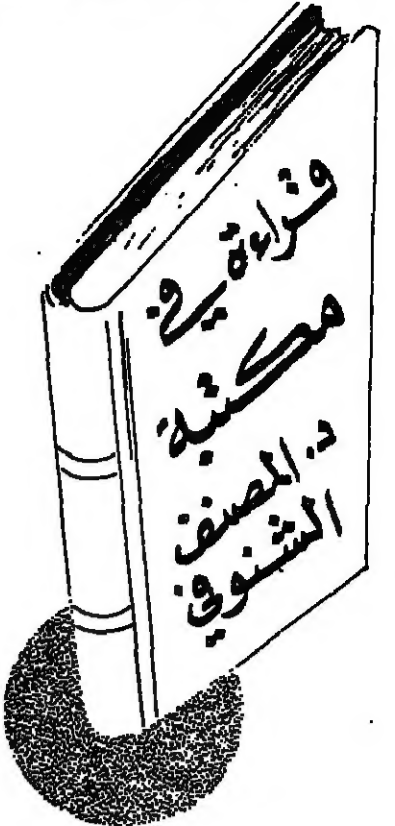 قراءة في
مكتبة
د. المصنف
الشنوفي